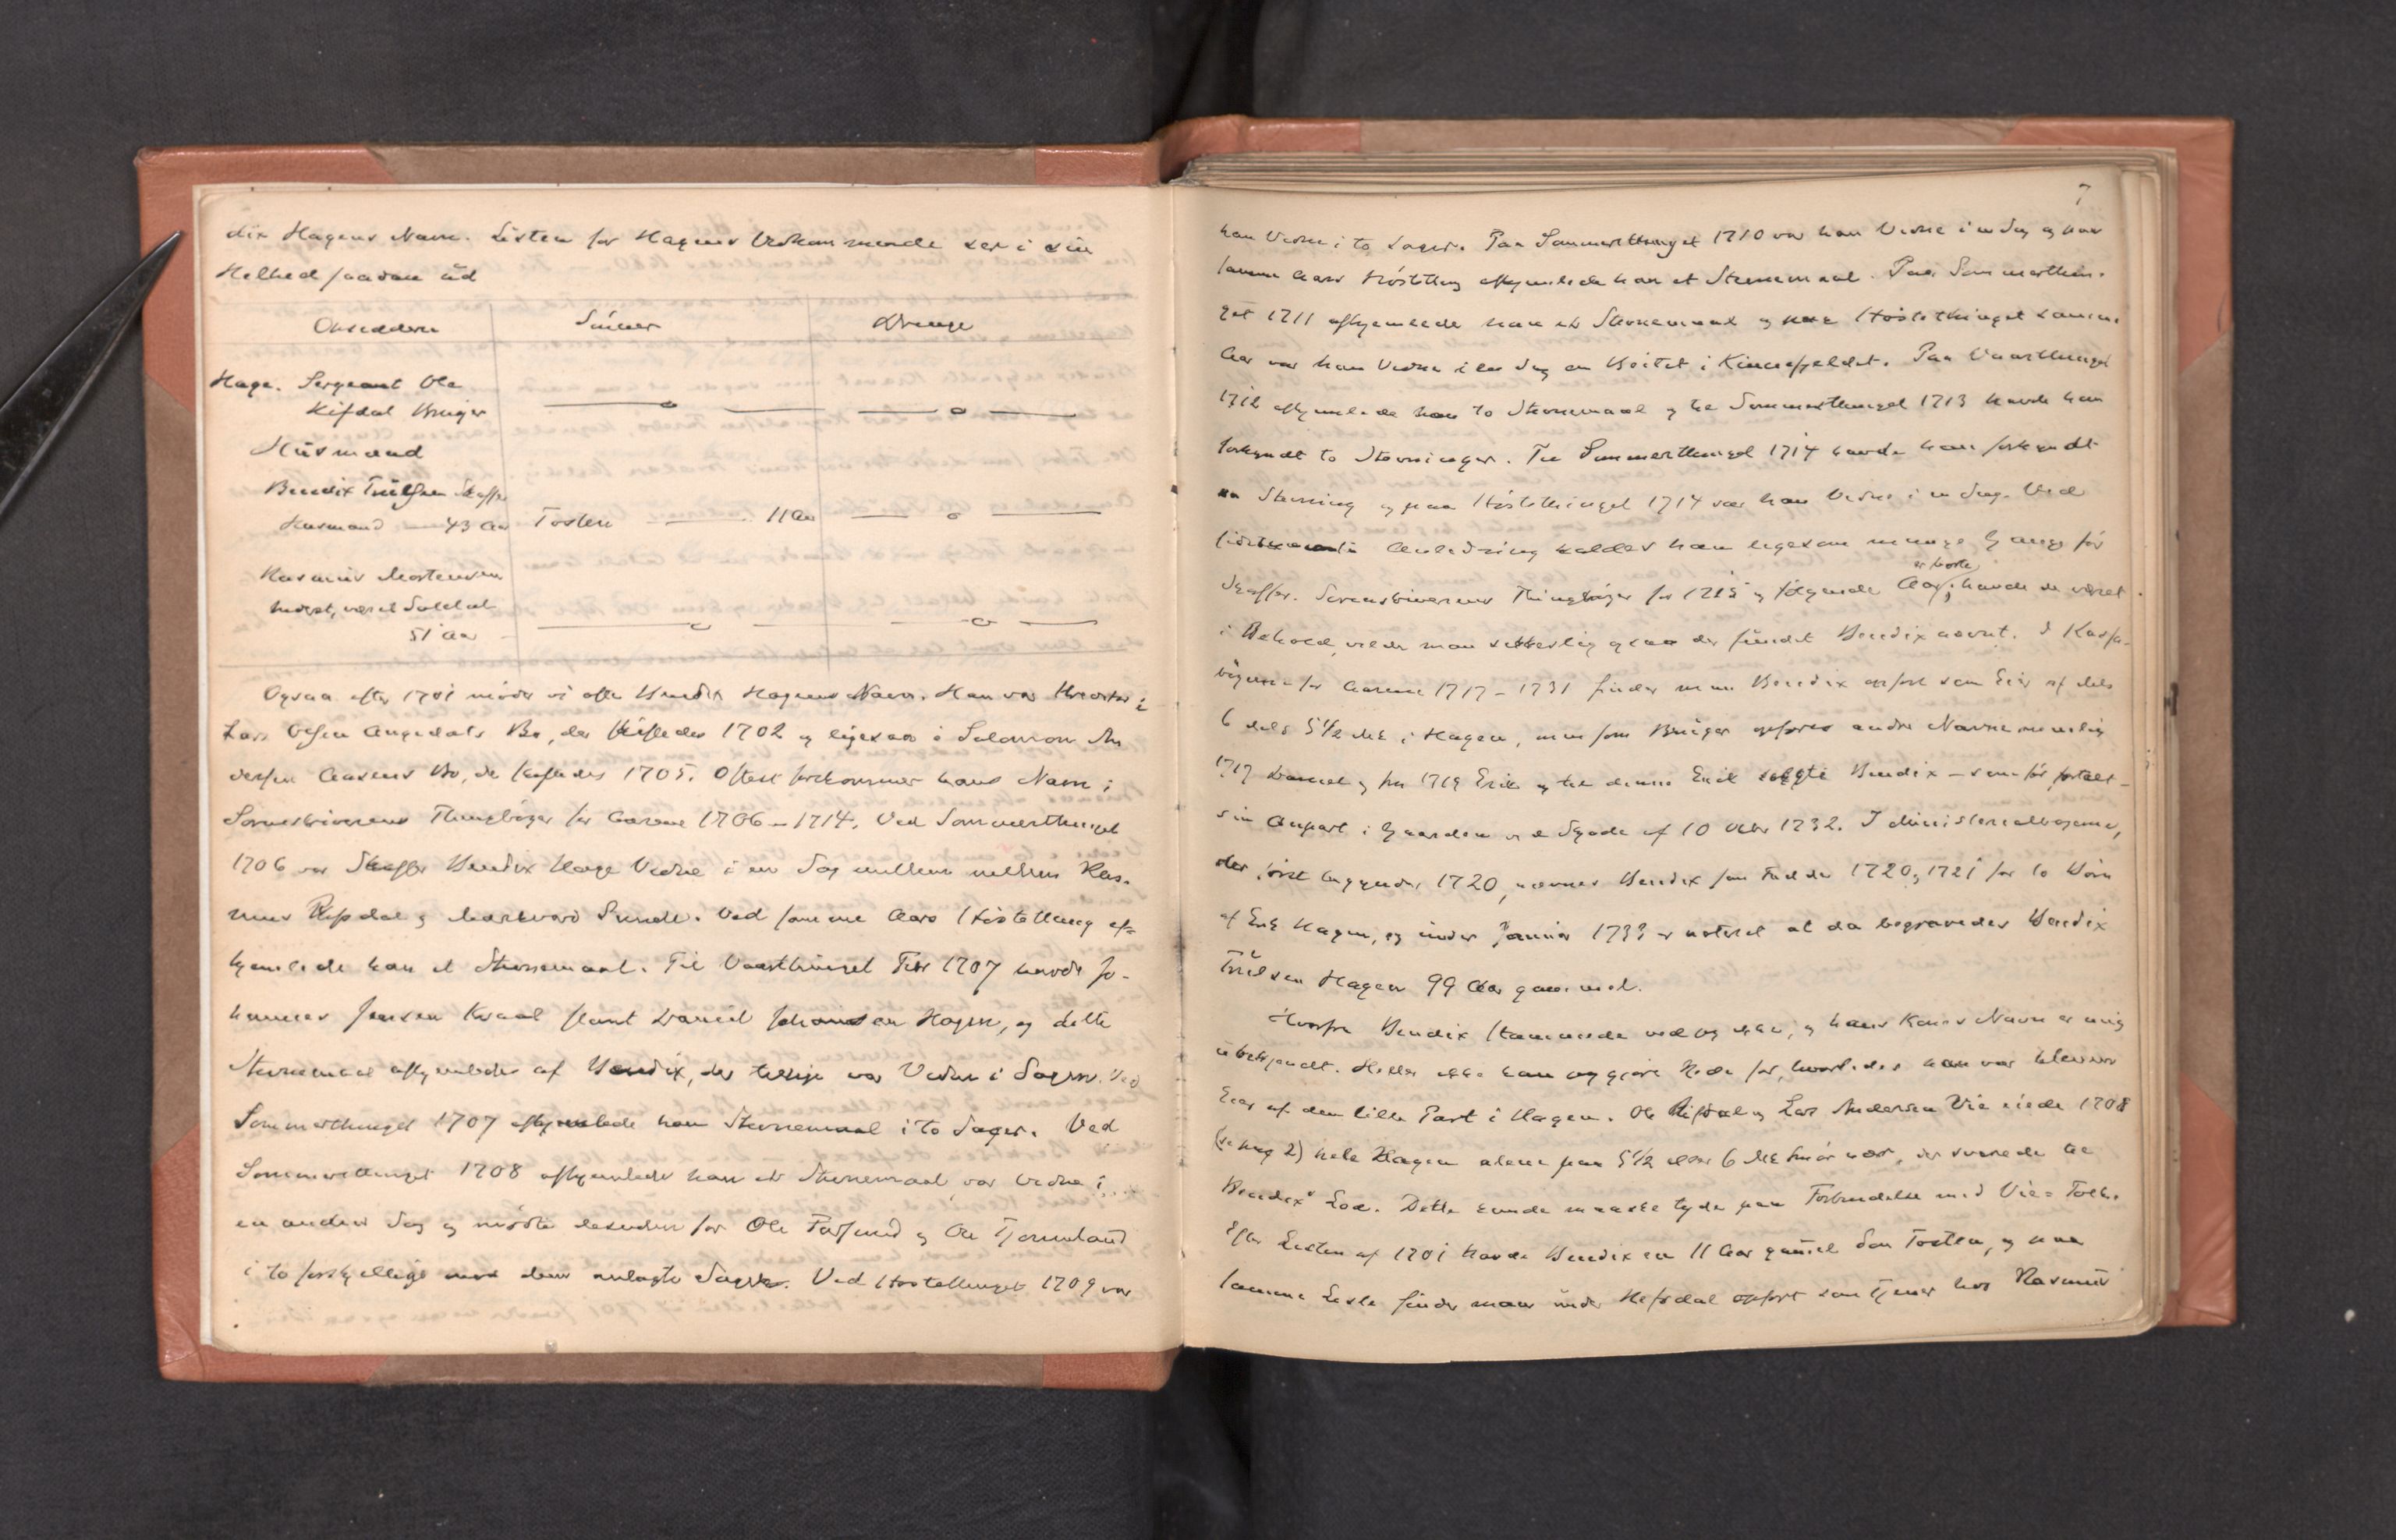 dix Hagens Navn. Listen for Hagens Vedkommende ser i sin
Helhed saadan ud
Opsiddere Sönner Drenge
Hage. Sergeant Ole
Rifdal Bruger
Husmænd
Bendix Truelsen Skaffer
Husmand 43 Aar Tosten 11 Aar o
Rasmus Mortensen
Inderst, været Soldat
51 Aar
Ogsaa efter 1701 möder vi ofte Bendix Hagens Navn. Han var Kreditor i
Lars Olsen Angedals Bo, der skiftedes 1702 og ligesaa i Salomon An
dersen Aasens Bo, der skiftedes 1705. Oftest forekommer hans Navn i
Sorenskriverens Thingböger for Aarene 1706 – 1714. Ved Sommerthinget
1706 var Skaffer Bendix Hage Vidne i en Sag mellem mellem Ras-
mus Rifsdal og Markvard Sunde. Ved samme Aars Höstthing af-
hjemlede han et Stevnemaal. Til Vaarthinget 1707 havde Jo-
hannes Jensen Kvaal stevnt Daniel Johansen Hagen, og dette
Stevnemaal afhjemledes af Bendix, der tillige var Vidne i Sagen. Ved
Sommerthinget 1707 afhjemlede han Stevnemaal i to Sager. Ved
Sommerthinget 1708 afhjemlede han et Stevnemaal, var Vidne i
en anden Sag og mödte desuden for Ole Farsund og Ole Tjönneland
i to forskjellige mod dem anlagte Sager. Ved Höstthinget 1709 var
7
han Vidne i to Sager. Paa Sommerthinget 1710 var han Vidne i en Sag og paa
samme Aars Höstthing afhjemlede han et Stevnemaal. Paa Sommerthin-
get 1711 afhjemlede han et Stevnemaal og paa Höstthinget samme
Aar var han Vidne i en Sag om Beitet i Kinnefjeldet. Paa Vaarthinget
1712 afhjemlede han to Stevnemaal og til Sommerthinget 1713 havde han
forkyndt to Stevninger. Til Sommerthinget 1714 havde han forkyndt
en Stevning og paa Höstthinget 1714 var han Vidne i en Sag. Ved
sidstnævnte Anledning kaldes han ligesom mange Gange för
Skaffer. Sorenskriverens Thingböger for 1715 og fölgende Aar er borte; havde de været
i Behold, vilde man vistnok ogsaa der fundet Bendix nævnt. I Kasse-
bögerne for Aarene 1717 – 1731 finder man Bendix opfört som Eier af dels
6 dels 5 1/2 Mk i Hagen, men som Bruger opföres andre Navne nemlig
1717 Daniel og fra 1719 Erik og til denne Erik solgte Bendix – som för fortalt –
sin Anpart i Gaarden ved Skjöde af 10 Oktbr 1732. I Ministerialbögerne,
der först begynder 1720, nævnes Bendix som Fadder 1720 og 1721 for to Börn
af Erik Hagen, og under Januar 1733 er noteret at da begravedes Bendix
Truelsen Hagen 99 Aar gammel.
Hvorfra Bendix stammede ved jeg ikke, og hans Kones Navn er mig
ubekjendt. Heller ikke kan jeg gjöre Rede for, hvorledes han var bleven
Eier af den lille Part i Hagen. Ole Rifsdal og Lars Andersen Vie eiede 1708
(se pag 2) hele Hagen alene paa 5 1/2 eller 6 Mk Smör nær, der svarede til
Bendix' Lod. Dette kunde maaske tyde paa Forbindelse med Vie-Folk.
Efter Listen af 1701 havde Bendix en 11 Aar gammel Sön Tosten, og paa
samme Liste finder man under Refsdal opfört som Tjener hos Rasmus